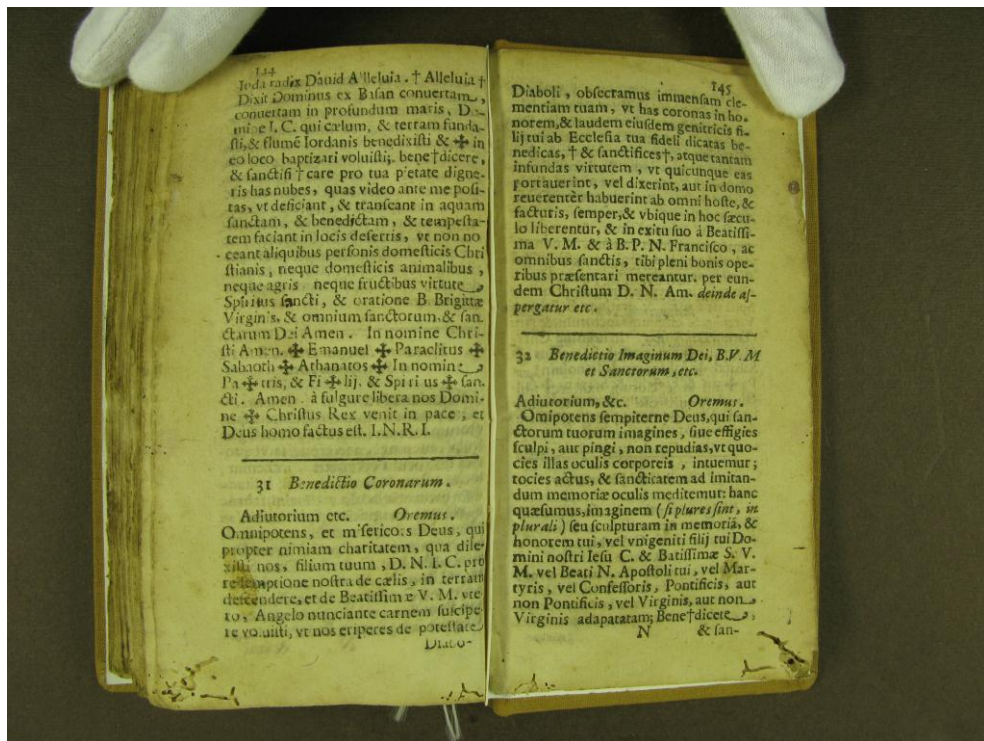 144
Iuda radix Dauid Alleluia. † Alleluia †
Dixit Dominus ex Basan conuertam,
conuertam in profundum maris, Do-
mine I. C. qui cælum, & terram funda-
sti, & flumẽ Iordanis benedixisti & ✠ in
eo loco baptizari voluisti; bene†dicere,
& sanctifi†care pro tua pietate digne-
ris has nubes, quas video ante me posi-
tas, vt deficiant, & transeant in aquam
sanctam, & benedictam, & tempesta-
tem faciant in locis desertis, vt non no
ceant aliquibus personis domesticis Chri
stianis, neque domesticis animalibus,
neque agris neque fructibus virtute
Spiritus sancti, & oratione B. Brigittæ
Virginis, & omnium sanctorum, & san.
ctarum Dei Amen. In nomine Chri-
sti Amen. ✠ Emanuel ✠ Paraclitus ✠
Sabaoth ✠ Athanatos ✠ In nomine
Pa✠tris, & Fi✠lij, & Spiritus ✠ san.
cti. Amen. à fulgure libera nos Domi-
ne ✠ Christus Rex venit in pace, et
Deus homo factus est. I.N.R.I.
31 Benedictio Coronarum.
Adiutorium etc. Oremus.
Omnipotens, et misericors Deus, qui
propter nimiam charitatem, qua dile-
xisti nos, filium tuum, D. N. I. C. pro
redemptione nostra de cælis, in terram
descendere, et de Beatissimæ V. M. vte
ro, Angelo nunciante carnem suscipe
re voluisti, vt nos eriperes de potestate
Diabo-
145
Diaboli, obsecramus immensam cle-
mentiam tuam, vt has coronas in ho.
norem, & laudem eiusdem genitricis fi-
lij tui ab Ecclesia tua fideli dicatas be-
nedicas, † & sanctifices†, atque tantam
infundas virtutem, vt quicunque eas
portauerint, vel dixerint, aut in domo
reuerentèr habuerint ab omni hoste, &
facturis, semper, & vbique in hoc sæcu-
lo liberentur, & in exitu suo à Beatissi-
ma V. M. & à B. P. N. Francisco, ac
omnibus sanctis, tibi pleni bonis ope-
ribus præsentari mereantur. per eun-
dem Christum D. N. Am. deinde as-
pergatur etc.
32 Benedictio Imaginum Dei, B.V.M
et Sanctorum, etc.
Adiutorium, &c. Oremus.
Omipotens sempiterne Deus, qui san-
ctorum tuorum imagines, siue effigies
sculpi, aut pingi, non repudias, vt quo-
cies illas oculis corporeis, intuemur;
tocies actus, & sancticatem ad imitan-
dum memoriæ oculis meditemur: hanc
quæsumus, imaginem (si plures sint, in
plurali) seu sculpturam in memoriā, &
honorem tui, vel vnigeniti filij tui Do-
mini nostri Iesu C. & Batissimæ S. V.
M. vel Beati N. Apostoli tui, vel Mar-
tyris, vel Confessoris, Pontificis, aut
non Pontificis, vel Virginis, aut non
Virginis adapatatam; Bene†dicere,
N & san-